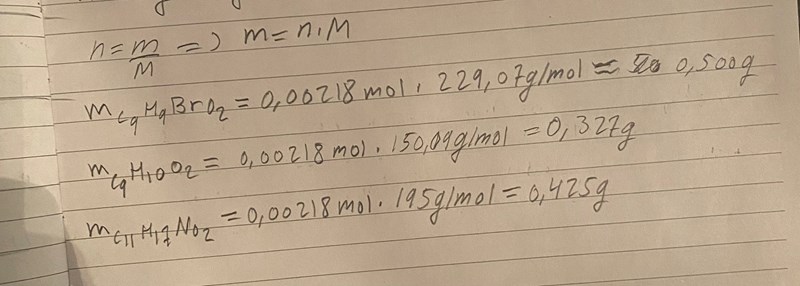 n = m/M => m = n · M
m C9H9BrO2 = 0,00218 mol · 229,07g/mol ≈ 0,500g
m C9H10O2 = 0,00218 mol · 150,09g/mol = 0,327g
m C11H17NO2 = 0,00218 mol · 195g/mol = 0,425g